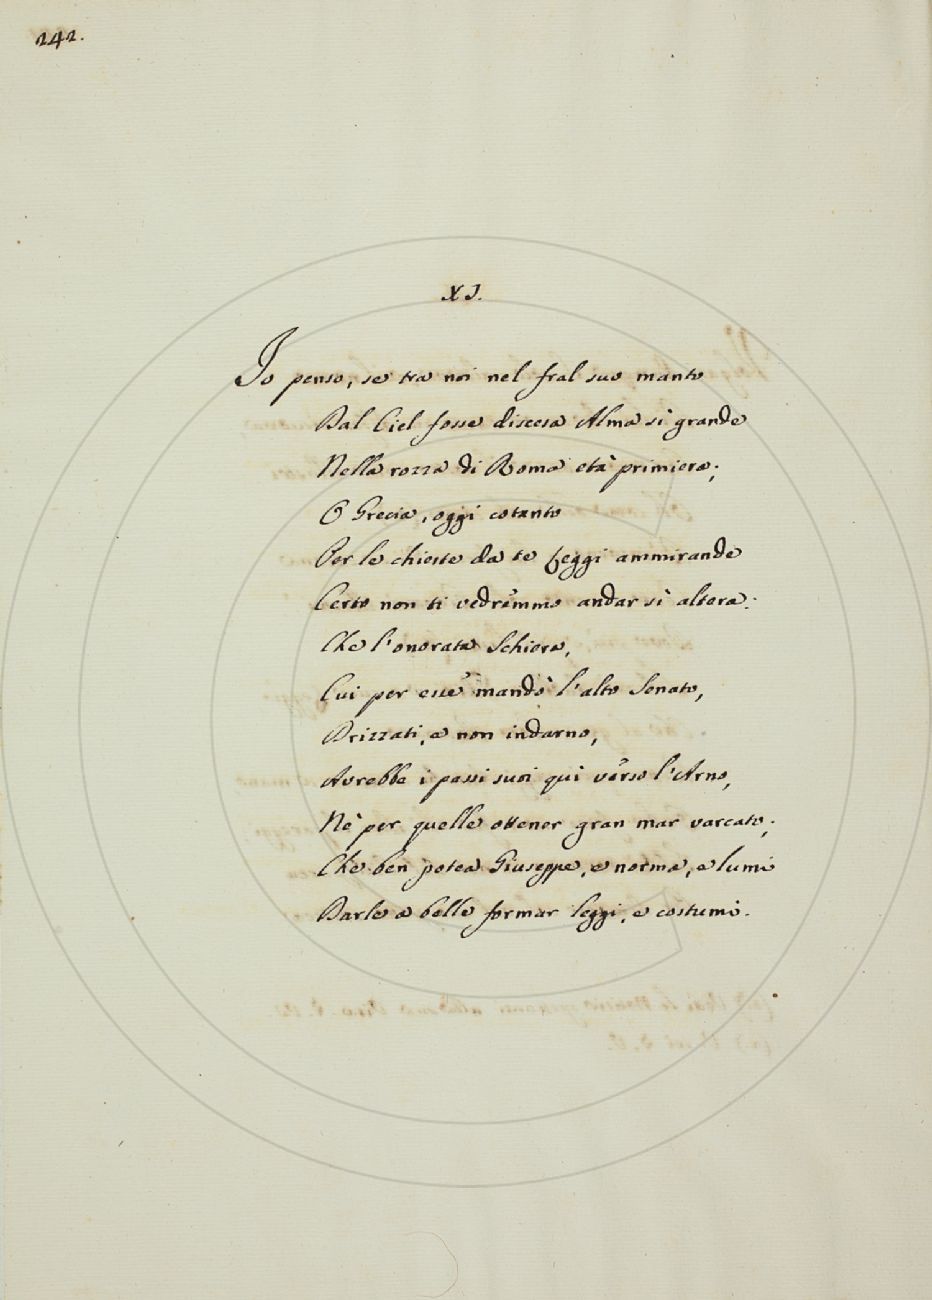 242.
XI.
Io penso, se tra noi nel fral suo manto
Dal Ciel fosse discesa Alma sì grande
Nella rozza di Roma età primiera;
O Grecia, oggi cotanto
Per le chieste da te Leggi ammirande
Certo non ti vedremmo andar sì altera:
Che l'onorata Schiera,
Cui per esse mandò l'alto Senato,
Drizzati, e non indarno,
Avrebbe i passi suoi qui verso l'Arno,
Nè per quelle ottener gran mar varcato;
Che ben potea Giuseppe, e norma, e lumi
Darle a belle formar leggi, e costumi.